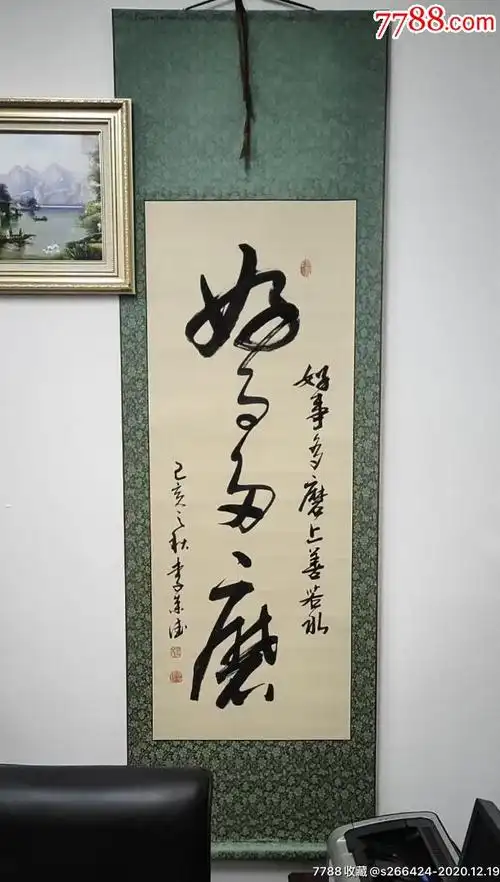 7788.com
好事多磨
好事多磨上善若水
己亥之秋李荣德
7788收藏@s266424-2020.12.19